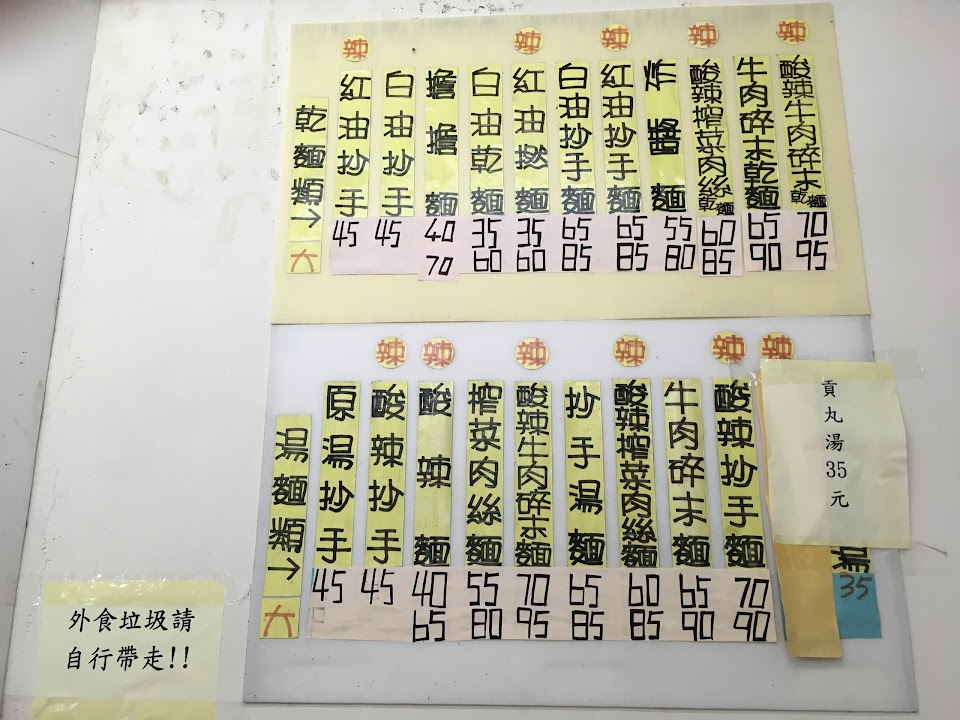 辣 辣 辣 辣 辣
乾麵類→
大
紅油抄手
45
白油抄手
45
擔擔麵
40
70
白油乾麵
35
60
紅油燃麵
35
60
白油抄手麵
65
85
紅油抄手麵
65
85
炸醬麵
55
80
酸辣榨菜肉絲乾麵
60
85
牛肉碎末乾麵
65
90
酸辣牛肉碎末乾麵
70
95
辣 辣 辣 辣 辣 辣
湯麵類→
大
原湯抄手
45
酸辣抄手
45
酸辣麵
40
65
榨菜肉絲麵
55
80
酸辣牛肉碎末麵
70
95
抄手湯麵
65
85
酸辣榨菜肉絲麵
60
85
牛肉碎末麵
65
90
酸辣抄手麵
70
90
貢丸湯35元
湯
35
外食垃圾請
自行帶走!!